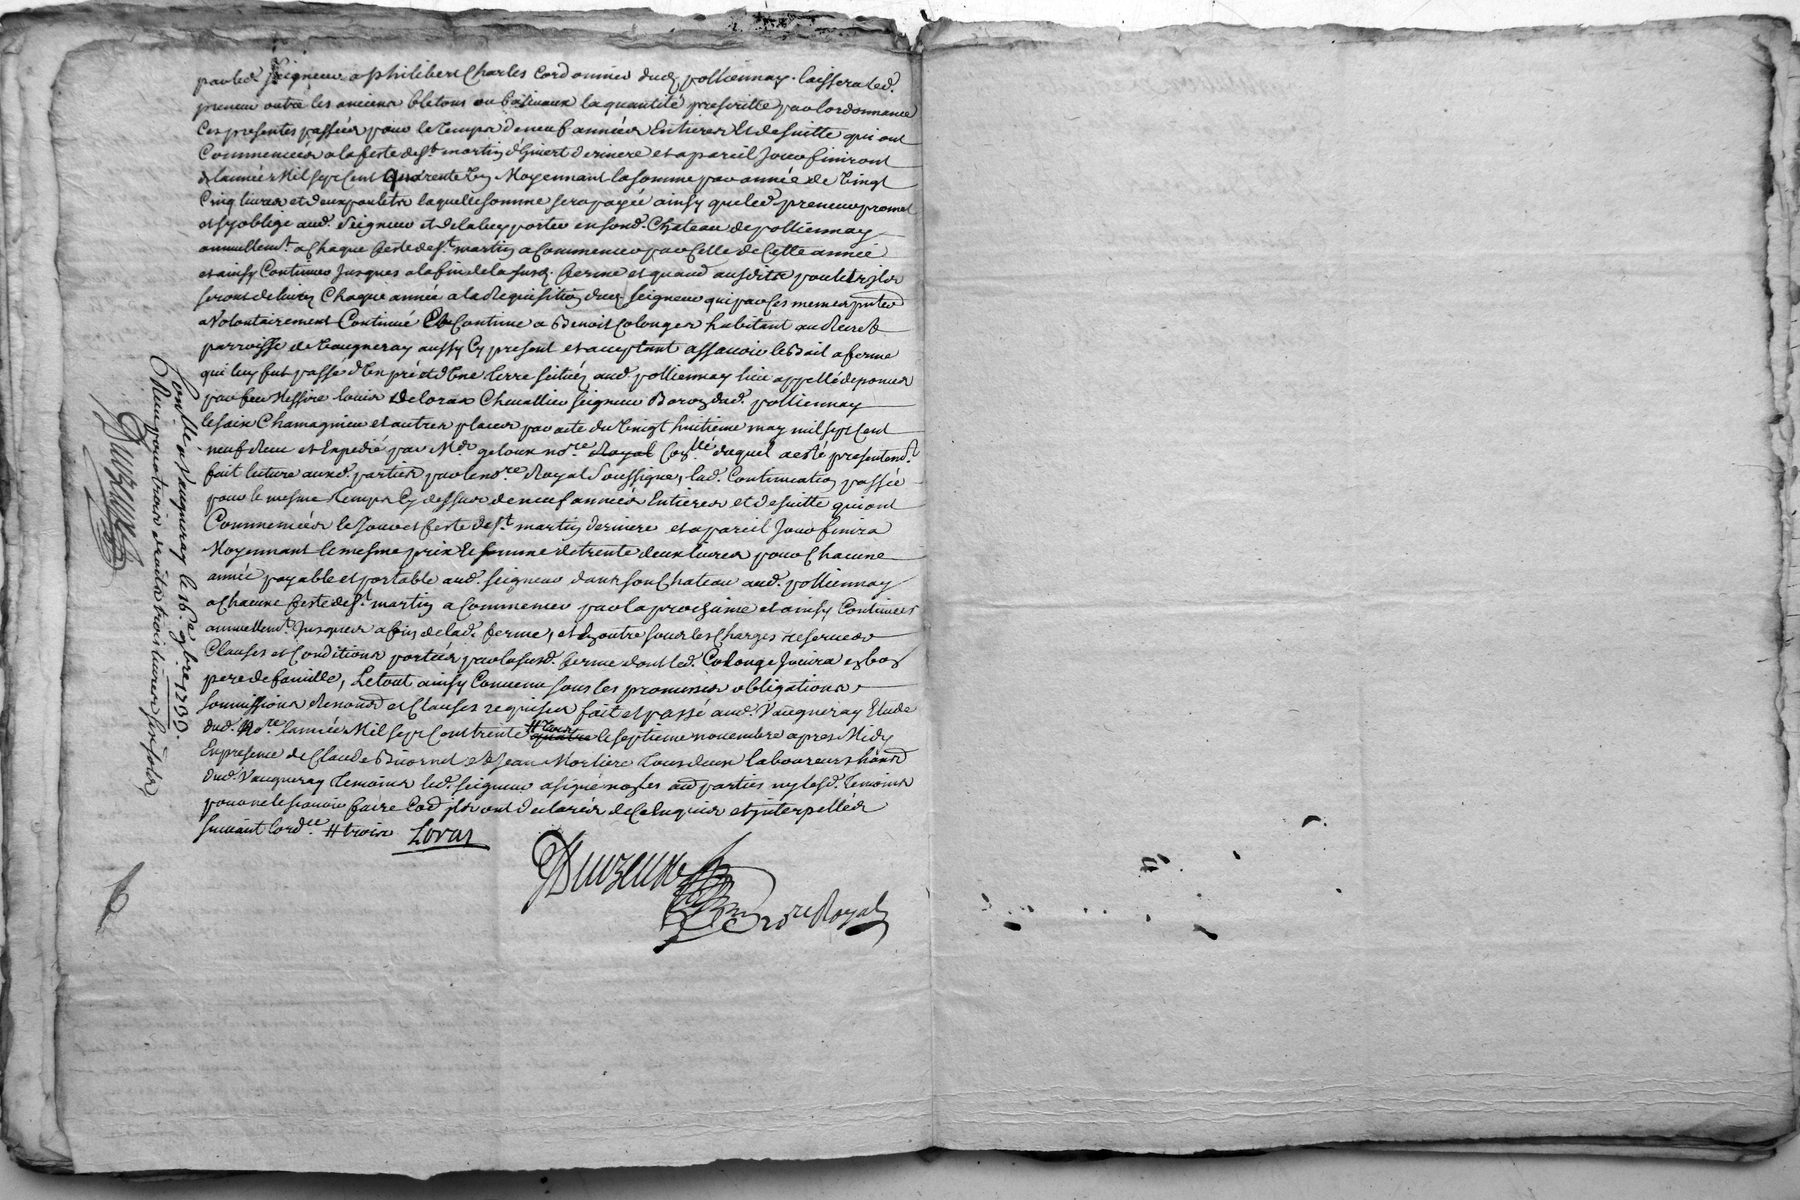 par led. Seigneur a philibert Charles Cordonnier dud. pollionnay. laissera led.
preneur outre les anciens bletons ou baliveaux la quantité prescritte par lordonnance
Ces presentes passées pour le temps de neuf années Entieres et de suitte qui ont
Commencées a la feste de St. martin d'hivert derniere et a pareil Jour finiront
de lannée Mil sept Cent quarente Moyennant la somme par année de Vingt
Cinq livres et deux poulets laquelle somme sera payée ainsy que led. preneur promet
et syoblige aud. Seigneur et de la luy porter en sond. Chateau de pollionnay
annuellemt. a Chaque feste de St. martin a Commencer par Celle de Cette année
et ainsy Continuer Jusques a la fin de la susd. ferme et quand ausdits poulets ils
seront delivrés Chaque année a la Requisition dud. seigneur qui par Ces memes pntes
a Volontairement Continué et Continue a Benoit Colonges habitant au Recret
parroisse de Vaugneray aussy Cy present et acceptant assavoir le Bail a ferme
qui luy fut passé d'Un pré et d'Une terre scitués aud. pollionnay lieu appellé
par feu Messire louis Deloras Chevallier seigneur Baron dud. pollionnay
Chamagnieu et autres places par acte du Vingt huitieme may mil sept Cent
neuf Receu et Expedié par Me. nore. Royal duquel a esté presentemt.
fait lecture auxd. parties par le nore. Royal Soussigné, lad. Continuation passée
pour le mesme temps Cy dessus de neuf années Entieres et de suitte qui ont
Commencées le Jour et feste de St. martin derniere et a pareil Jour finira
Moyennant le mesme prix et somme de trente deux livres pour Chacune
année payable et portable aud. seigneur dans son Chateau aud. pollionnay
a Chacune feste de St. martin a Commencer par la prochaine et ainsy Continuer
annuellemt. Jusques a fin de lad. ferme, et En outre sous les Charges reserves
Clauses et Conditions portées par la susd. ferme dont led. Colonge Jouira en bon
pere de famille, Le tout ainsy Convenu sous les promesses obligations
soumissions Renond. et Clauses requises fait et passé aud. Vaugneray Etude
dud. nore. lannée Mil sept Cent trente quatre le septieme novembre apres Midy
En presence de Claude et Jean Morliere tous deux laboureurs hants
dud. Vaugneray temoins led. seigneur a signé non les aud. parties ny lesd. temoins
pour ne le scavoir faire Com ils ont declarés de Ce Enquis et interpellés
suivant lordce. # trois Loras
Duvzeure
nore Royal
Contllé a Vaugneray le 16e. 9bre. 1733.
Reçu pour trois droits trois livres six sols
Duvzeure